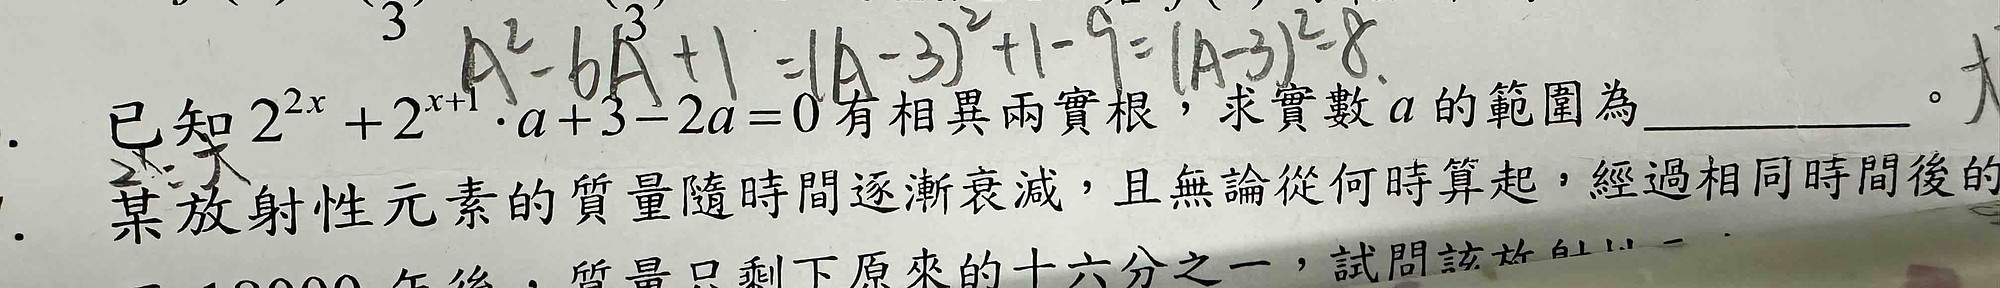 3 3
A²-6A+1 =(A-3)²+1-9=(A-3)²-8.
已知 2^{2x} + 2^{x+1}·a+3-2a=0 有相異兩實根，求實數 a 的範圍為__________。
某放射性元素的質量隨時間逐漸衰減，且無論從何時算起，經過相同時間後的
年後，質量只剩下原來的十六分之一，試問該放射